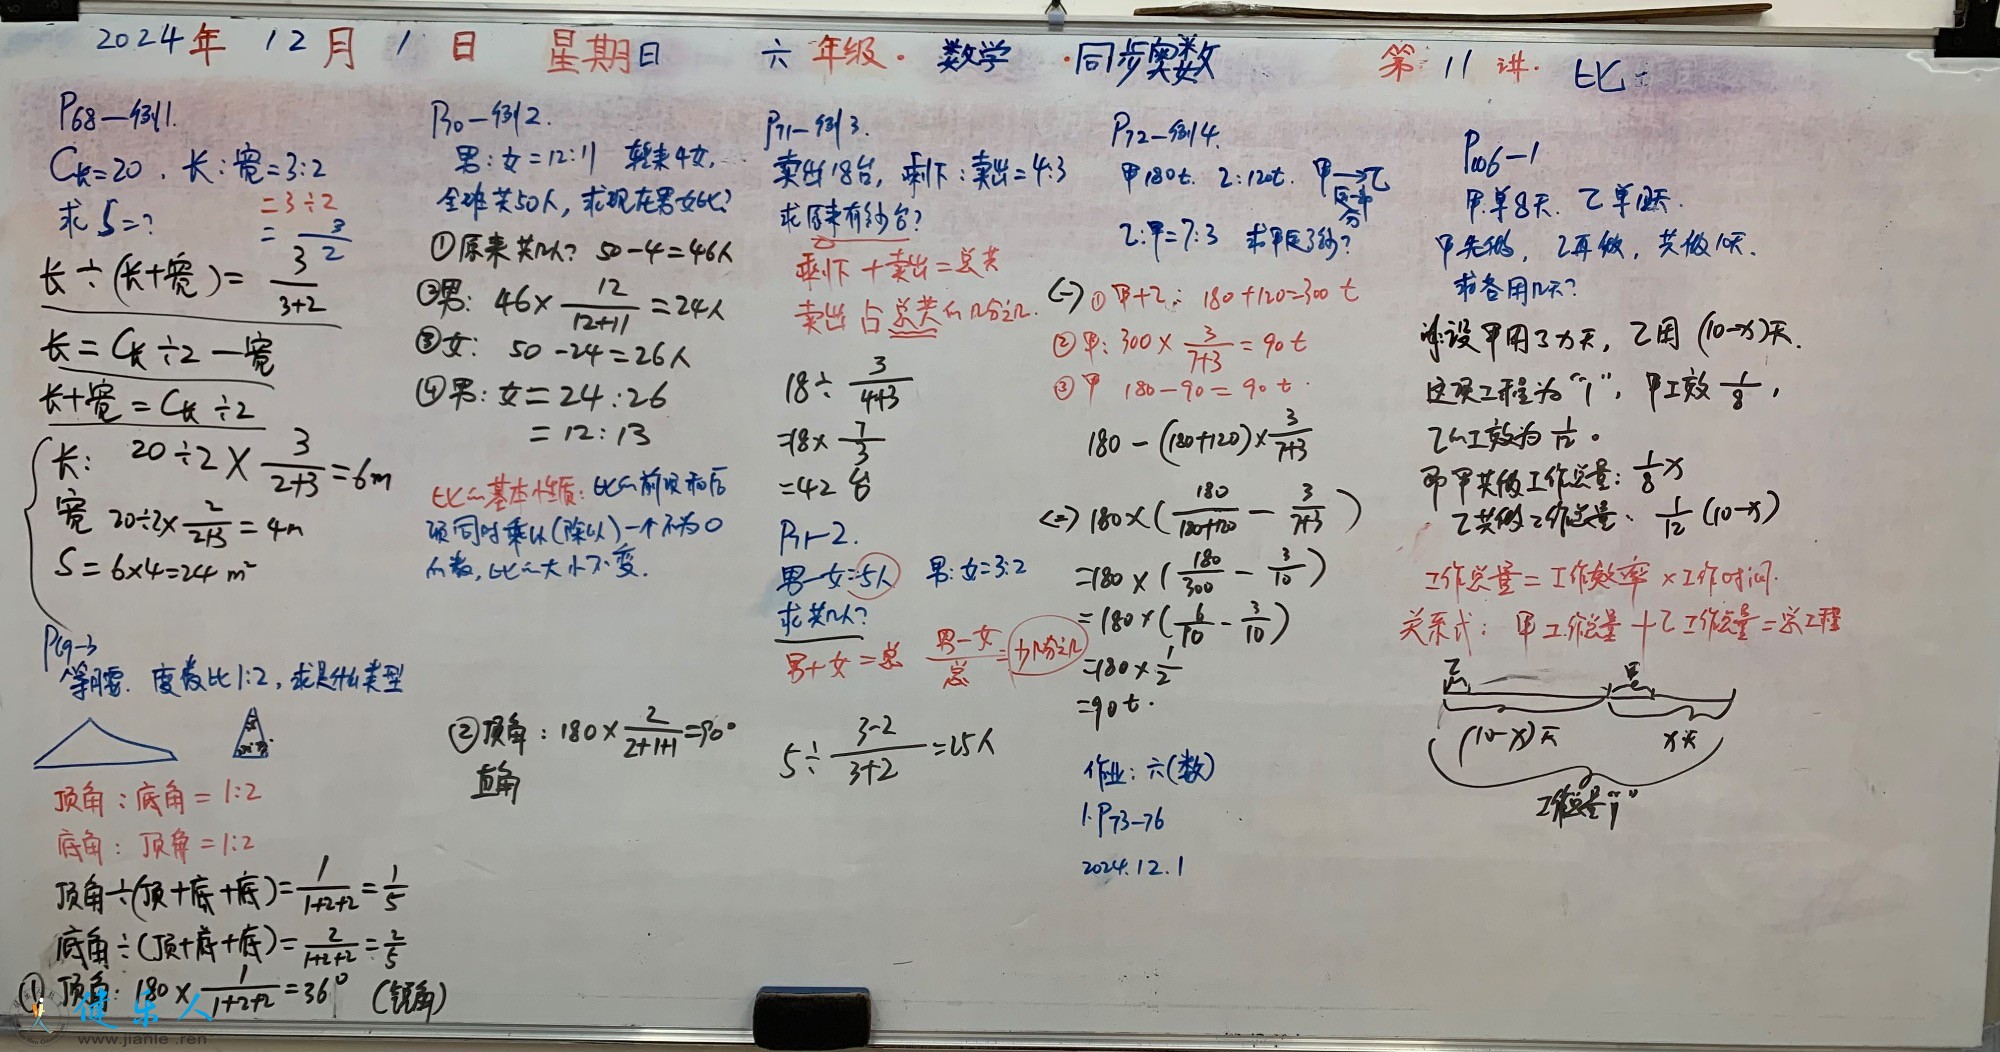 2024年 12月 1日 星期日 六年级·数学·同步奥数 第11讲·比
P68—例1.
C长=20. 长:宽=3:2
=3÷2
求S=?
= 3/2
长÷(长+宽)= 3/(3+2)
长=C长÷2—宽
长+宽=C长÷2
长: 20÷2× 3/(2+3) =6m
宽 20÷2× 2/(2+3) =4m
S=6×4=24m²
P69-3
等腰. 度数比1:2,求是什么类型
顶角:底角=1:2
底角:顶角=1:2
顶角÷(顶+底+底)= 1/(1+2+2) = 1/5
底角÷(顶+底+底)= 2/(1+2+2) = 2/5
① 顶角: 180× 1/(1+2+2) =36° (锐角)
P70—例2.
男:女=12:11 转来4女,
全班共50人,求现在男女比?
①原来共几人? 50-4=46人
②男: 46× 12/(12+11) =24人
③女: 50-24=26人
④男:女=24:26
=12:13
比的基本性质:比的前项和后
项同时乘以(除以)一个不为0
的数,比的大小不变.
②顶角:180× 2/(2+1+1) =90°
直角
P71—例3.
卖出18台,剩下:卖出=4:3
求原来有多少台?
剩下+卖出=总共
卖出占总共的几分之几.
18÷ 3/(4+3)
=18× 7/3
=42台
P71-2.
男—女=5人 男:女=3:2
求共几人?
男+女=总 (男—女)/总 = 几分之几
5÷ (3-2)/(3+2) =25人
P72—例4.
甲180t. 乙:120t. 甲→乙
乙:甲=7:3 求甲运了多少?
<=> ①甲+乙: 180+120=300t
②甲: 300× 3/(7+3) =90t
③甲 180-90=90t.
180-(180+120)× 3/(7+3)
<=> 180×( 180/(180+120) - 3/(7+3) )
=180×( 180/300 - 3/10 )
=180×( 6/10 - 3/10 )
=180× 1/2
=90t.
作业:六(数)
1.P73-76
2024.12.1
P106-1
甲单8天. 乙单12天.
甲先做,乙再做,共做10天.
求各用几天?
解:设甲用了x天,乙用(10-x)天.
这项工程为"1",甲工效 1/8 ,
乙的工效为 1/12 。
即甲共做工作总量: 1/8 x
乙共做工作总量: 1/12 (10-x)
工作总量=工作效率×工作时间.
关系式:甲工作总量+乙工作总量=总工程
乙 甲
(10-x)天 x天
工作总量"1"
健乐人
www.jianle.ren